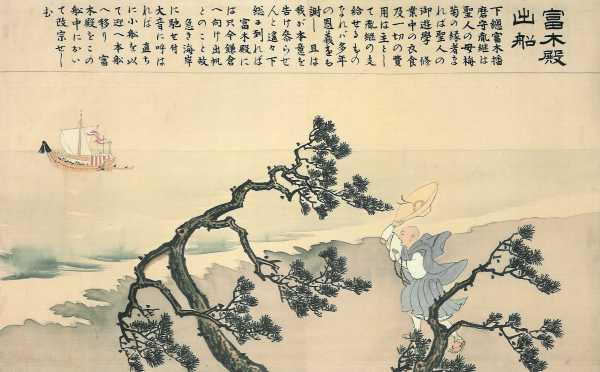 富木殿
出船
下總富木播
磨守胤継は
聖人の母梅
菊の縁者な
れば聖人の
御遊學修
業中の衣食
及一切の費
用は主とし
て胤継の支
給せるもの
なれバ多年
の恩義をも
謝し且は
我が本意を
告げ参らせ
んと遥々下
総に到れば
富木殿に
は只今鎌倉
へ向け出帆
とのこと故
急ぎ海岸
に馳せ付
大音に呼は
れば直ち
に小船を以
て迎へ本船
へ移り富
木殿をこの
船中におい
て改宗せし
む